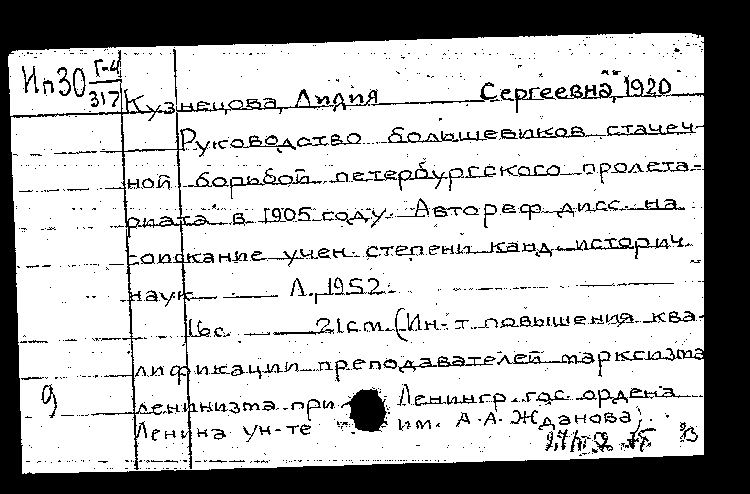 Ип30 Г-4
317
Кузнецова, Лидия Сергеевна, 1920
Руководство большевиков стачеч-
ной борьбой петербургского пролета-
риата в 1905 году. Автореф. дисс. на
соискание учен. степени канд. историч.
наук Л., 1952.
16с. 21см. (Ин-т повышения ква-
лификации преподавателей марксизма
9 ленинизма при Ленингр. гос. ордена
Ленина ун-те им. А.А. Жданова)